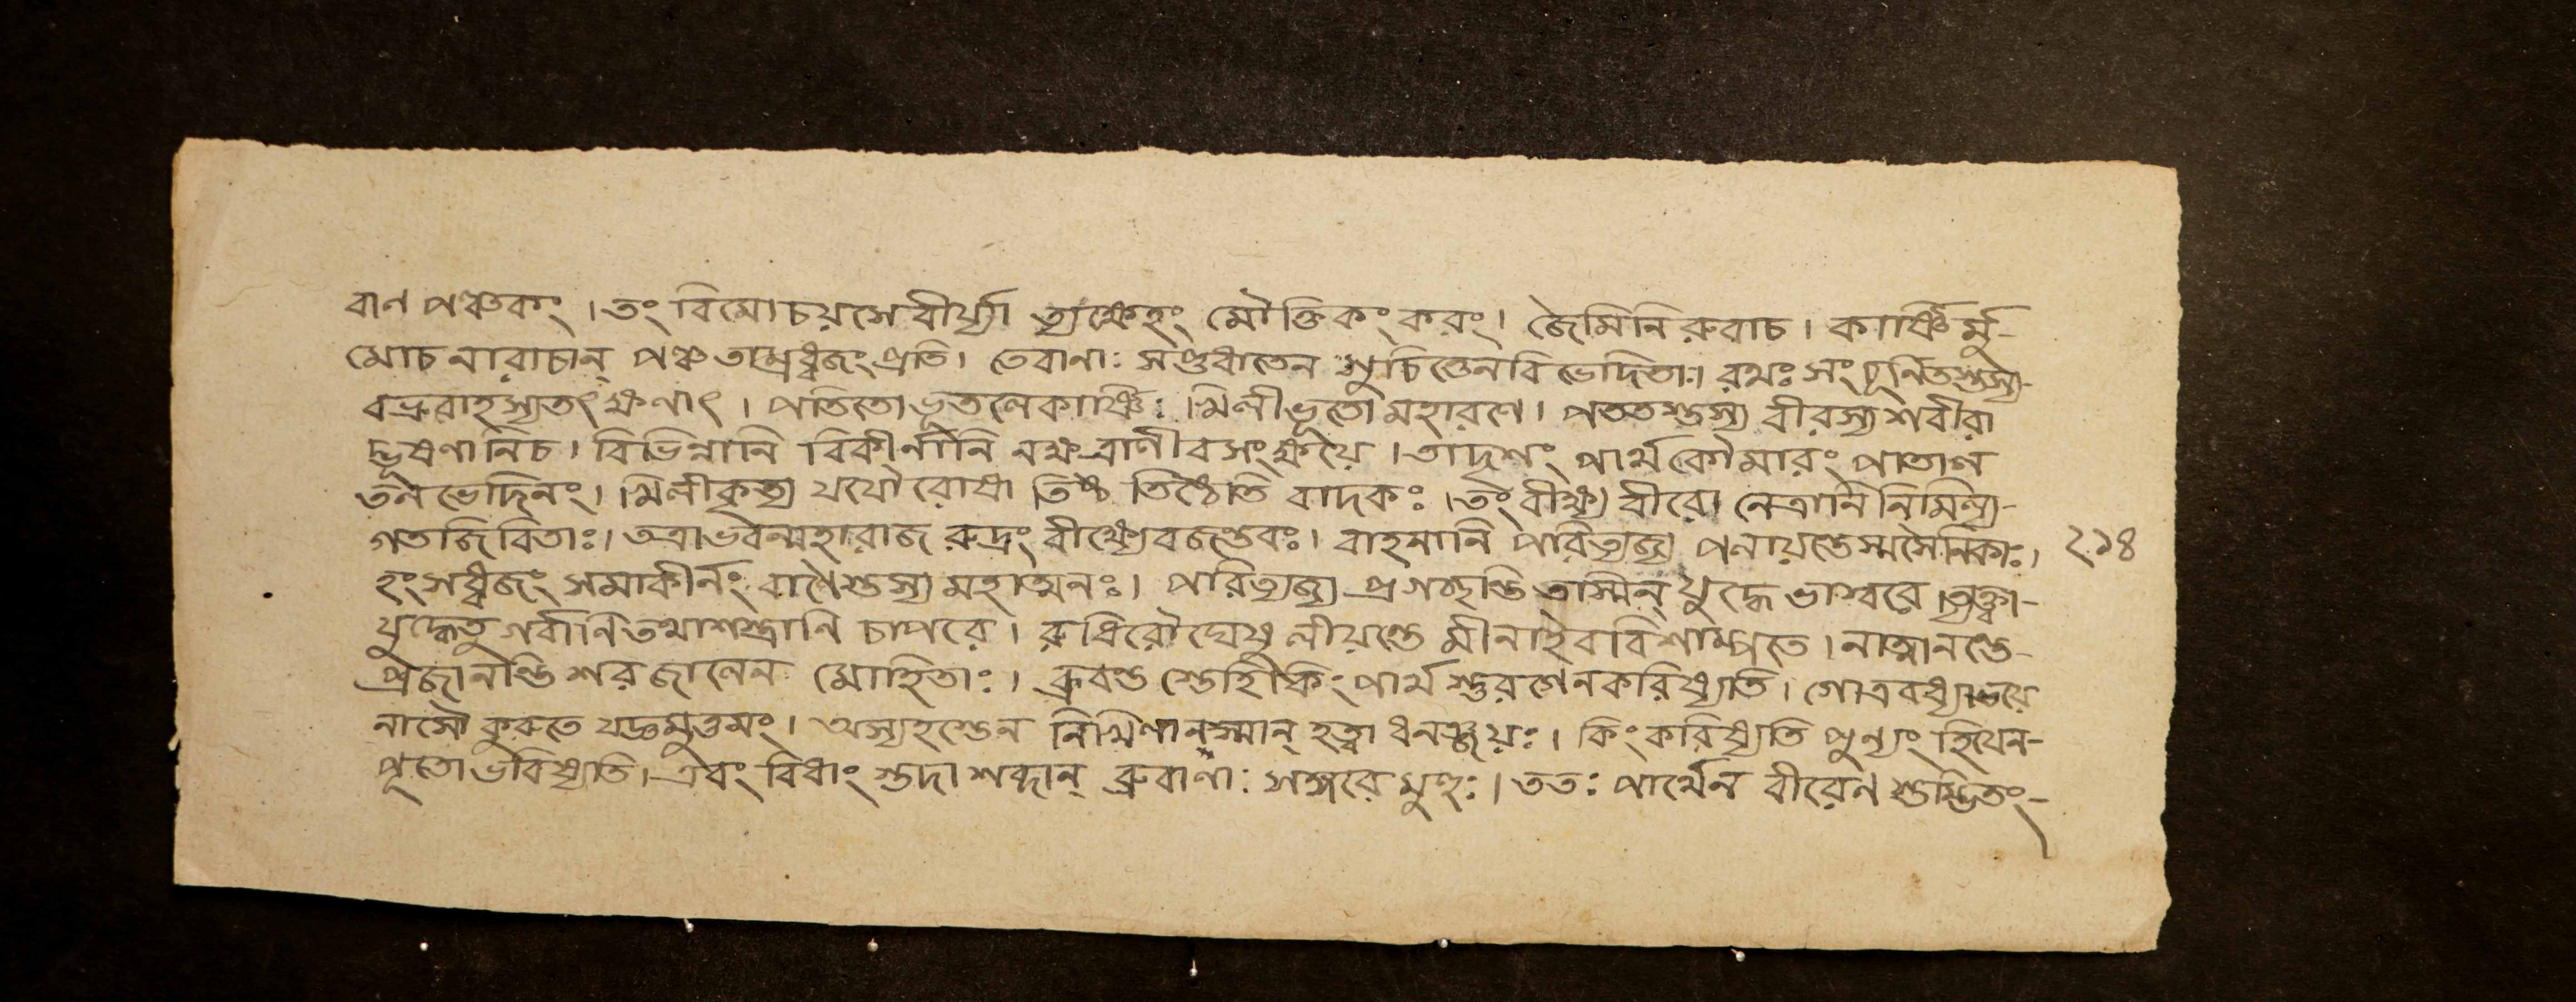 বাণ পঞ্চকং । তং বিমোচয়সে বীর্য্যা ত্যক্ষেহং মৌক্তিকং করং । জৈমিনি রুবাচ । কার্ষ্ণির্মু-
মোচ নারাচান্ পঞ্চ তাম্রধ্বজং প্রতি । তেবানাঃ সপ্তধাতেন সুচিত্তেনবিভেদিতাঃ । রথঃ সংচূর্নিতস্তস্য
বভ্রুবাহস্যতৎক্ষণাৎ । পতিতোভূতলেকার্ষ্ণিঃ । মিলীভূতো মহারণে । পততস্তস্য বীরস্য শবীরা
দ্ভূষণানিচ । বিভিন্নানি বিকীর্ণানি নক্ষত্রাণীবসংক্ষয়ে । তাদৃশং পার্থকৌমারং পাতাল
তলভেদিনং । মিলীকৃত্য যযৌ রোধা তিষ্ঠ তিষ্ঠেতি বাদকঃ । তং বীক্ষ্য বীরো নেত্রানি নিমিল্য-
গতজিবিতাঃ । তত্রাভবন্মহারাজ রুদ্রং বীক্ষ্যেবজন্তবঃ । বাহনানি পরিত্যজ্য পলায়ন্তেস্মসৈনিকাঃ । ২১৪
হংসধ্বজং সমাকীর্নং বাণৈস্তস্য মহাত্মনঃ । পরিত্যজ্য প্রগচ্ছন্তি তাস্মিন্ যুদ্ধে ভাস্বরে । ত্যক্ত্বা-
যুদ্ধেতু গর্বানি তথাশস্ত্রানি চাপরে । রুধিরৌঘেষু লীয়ন্তে মীনাইববিশাম্পতে । নাত্মানন্তে-
প্রজানন্তি শরজালেন মোহিতাঃ । ব্রুবন্ত স্তেহিকিং পার্থ স্তুরগেনকরিষ্যতি । গোত্রবধ্যাভয়ে
নাসৌ কুরুতে যজ্ঞমুত্তমং । অস্যহস্তেন নিখিলানস্মান্ হত্বা ধনঞ্জয়ঃ । কিং করিষ্যতি পুন্যং হিযেন-
পূতো ভবিষ্যতি । এবং বিধাং স্তদা শব্দান্ ব্রুবাণাঃ সঙ্গরে মুহুঃ । ততঃ পার্থেন বীরেণ স্তম্ভিতং-